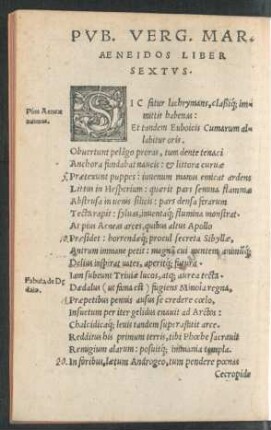 PVB. VERG. MAR.
AENEIDOS LIBER
SEXTVS.
SIC fatur lachrymans, classiq; im
mittit habenas:
Pius Aeneas
Et tandem Euboicis Cumarum al
labitur oris.
Obuertunt pelago proras, tum dente tenaci
Anchora fundabat naueis: & littora curuæ
Prætexunt puppes: iuuenum manus emicat ardens
Littus in Hesperium: quærit pars semina flammæ
Abstrusa in uenis silicis: pars densa ferarum
Tecta rapit: syluas, inuentaq; flumina monstrat.
At pius Aeneas arces, quibus altus Apollo
10. Præsidet: horrendæq; procul secreta Sibyllæ,
Antrum immane petit: magnā cui mentem animūq;
Delius inspirat uates, aperitq; futura.
Iam subeunt Triuiæ lucos, atq; aurea tecta.
Fabula de Dæ
dalo.
Dædalus (ut fama est) fugiens Minoia regna,
Præpetibus pennis ausus se credere cœlo,
Insuetum per iter gelidas enauit ad Arctos:
Chalcidicaq; leuis tandem superastitit arce.
Redditus his primum terris, tibi Phœbe sacrauit
Remigium alarum: posuitq; immania templa.
20. In foribus, lætum Androgeo, tum pendere pœnas
Cecropidæ